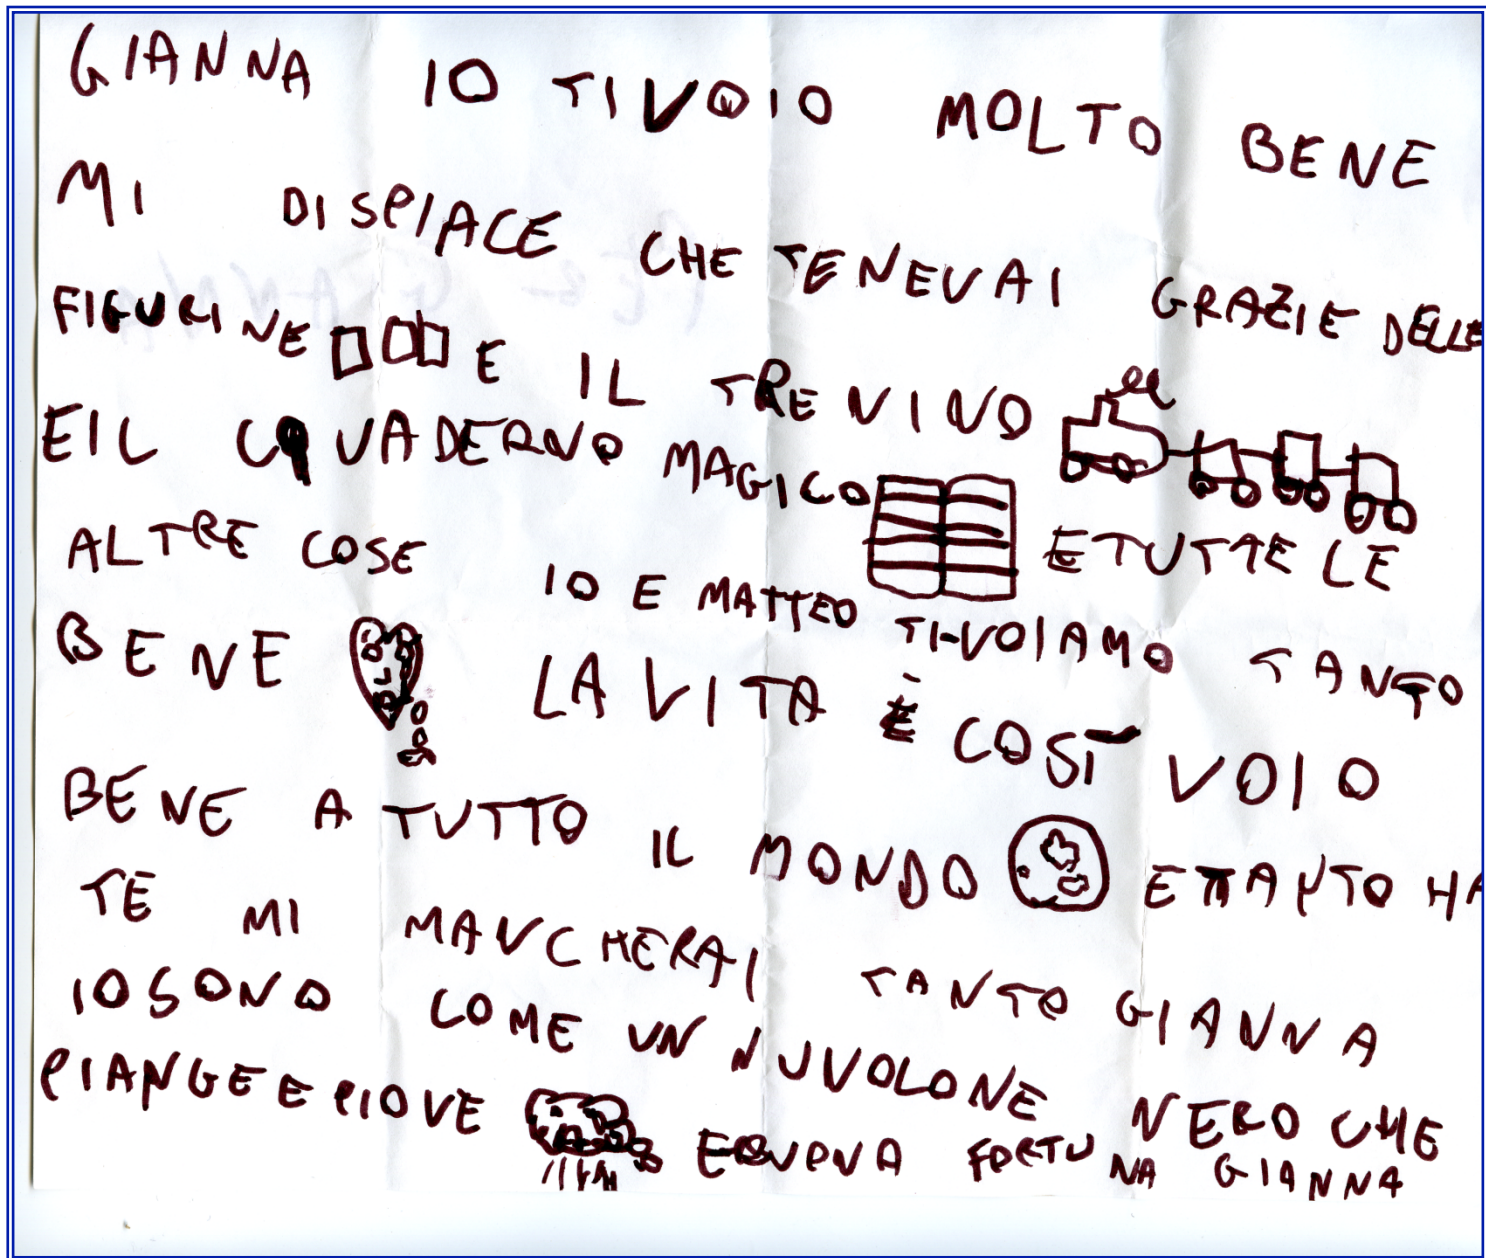 GIANNA IO TIVOIO MOLTO BENE
MI DISPIACE CHE TENEVAI GRAZIE DELLE
FIGURINE E IL TRENINO
EIL CQUADERNO MAGICO ETUTTE LE
ALTRE COSE IO E MATTEO TI-VOIAMO TANTO
BENE LA VITA È COSÌ VOIO
BENE A TUTTO IL MONDO E TANTO HA
TE MI MANCHERAI TANTO GIANNA
IOSONO COME UN NUVOLONE NERO CHE
PIANGE E PIOVE E BUONA FORTUNA GIANNA